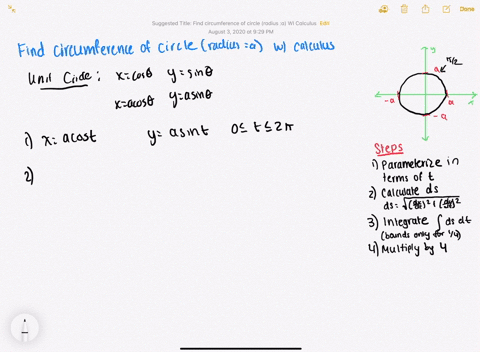 Suggested Title: Find circumference of circle (radius :a) W/ Calculus Edit
August 3, 2020 at 9:29 PM
Done
Find circumference of circle (radius = a) w/ calculus
Unit Circle: x = cosθ y = sinθ
x = acosθ y = asinθ
1) x = acost y = asint 0 ≤ t ≤ 2π
2)
y
π/2
a
-a
a
x
-a
Steps
1) Parameterize in
terms of t
2) Calculate ds
ds = √(dx/dt)² + (dy/dt)²
3) Integrate ∫ ds dt
(bounds only for 1/4)
4) Multiply by 4